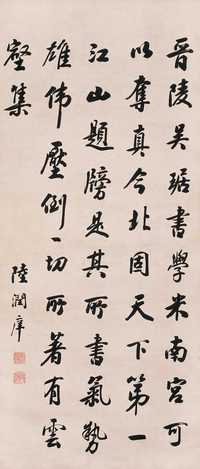 晋陵吴琚書學米南宮可
以奪真今北固天下第一
江山題牓是其所書氣勢
雄偉壓倒一切所著有雲
壑集
陸潤庠